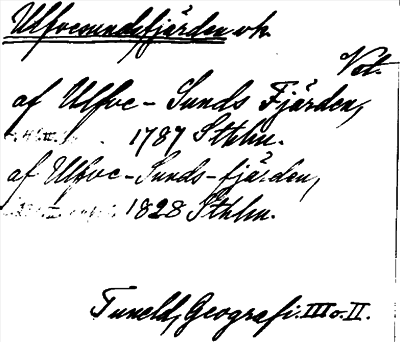 Ulfvesundsfjärden vk.
Vst.
af Ulfve-Sunds Fjärden,
1787 Sthlm.
af Ulfve-Sunds-fjärden,
1828 Sthlm.
Tuneld, Geografi. III o. II.